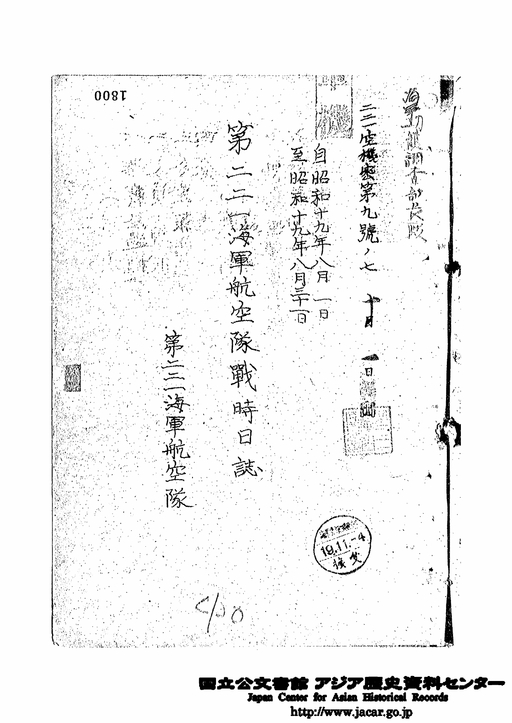 1800
海軍功績調査部長殿
二二一空機密第九號ノ七 十月一日
自昭和十九年八月一日
至昭和十九年八月三十一日
第二二一海軍航空隊戰時日誌
第二二一海軍航空隊
19.11.-4
接受
国立公文書館 アジア歴史資料センター
Japan Center for Asian Historical Records
http://www.jacar.go.jp